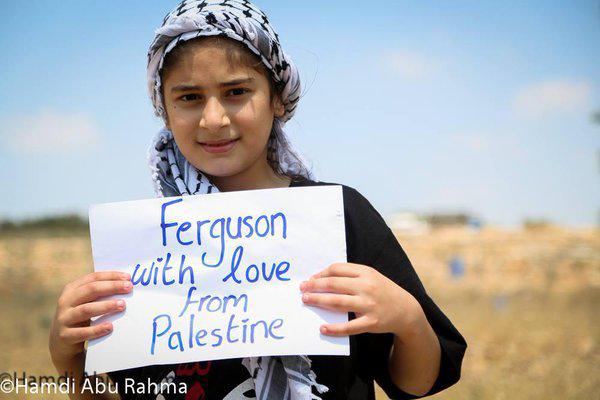 Ferguson
with love
from
Palestine
©Hamdi Abu Rahma